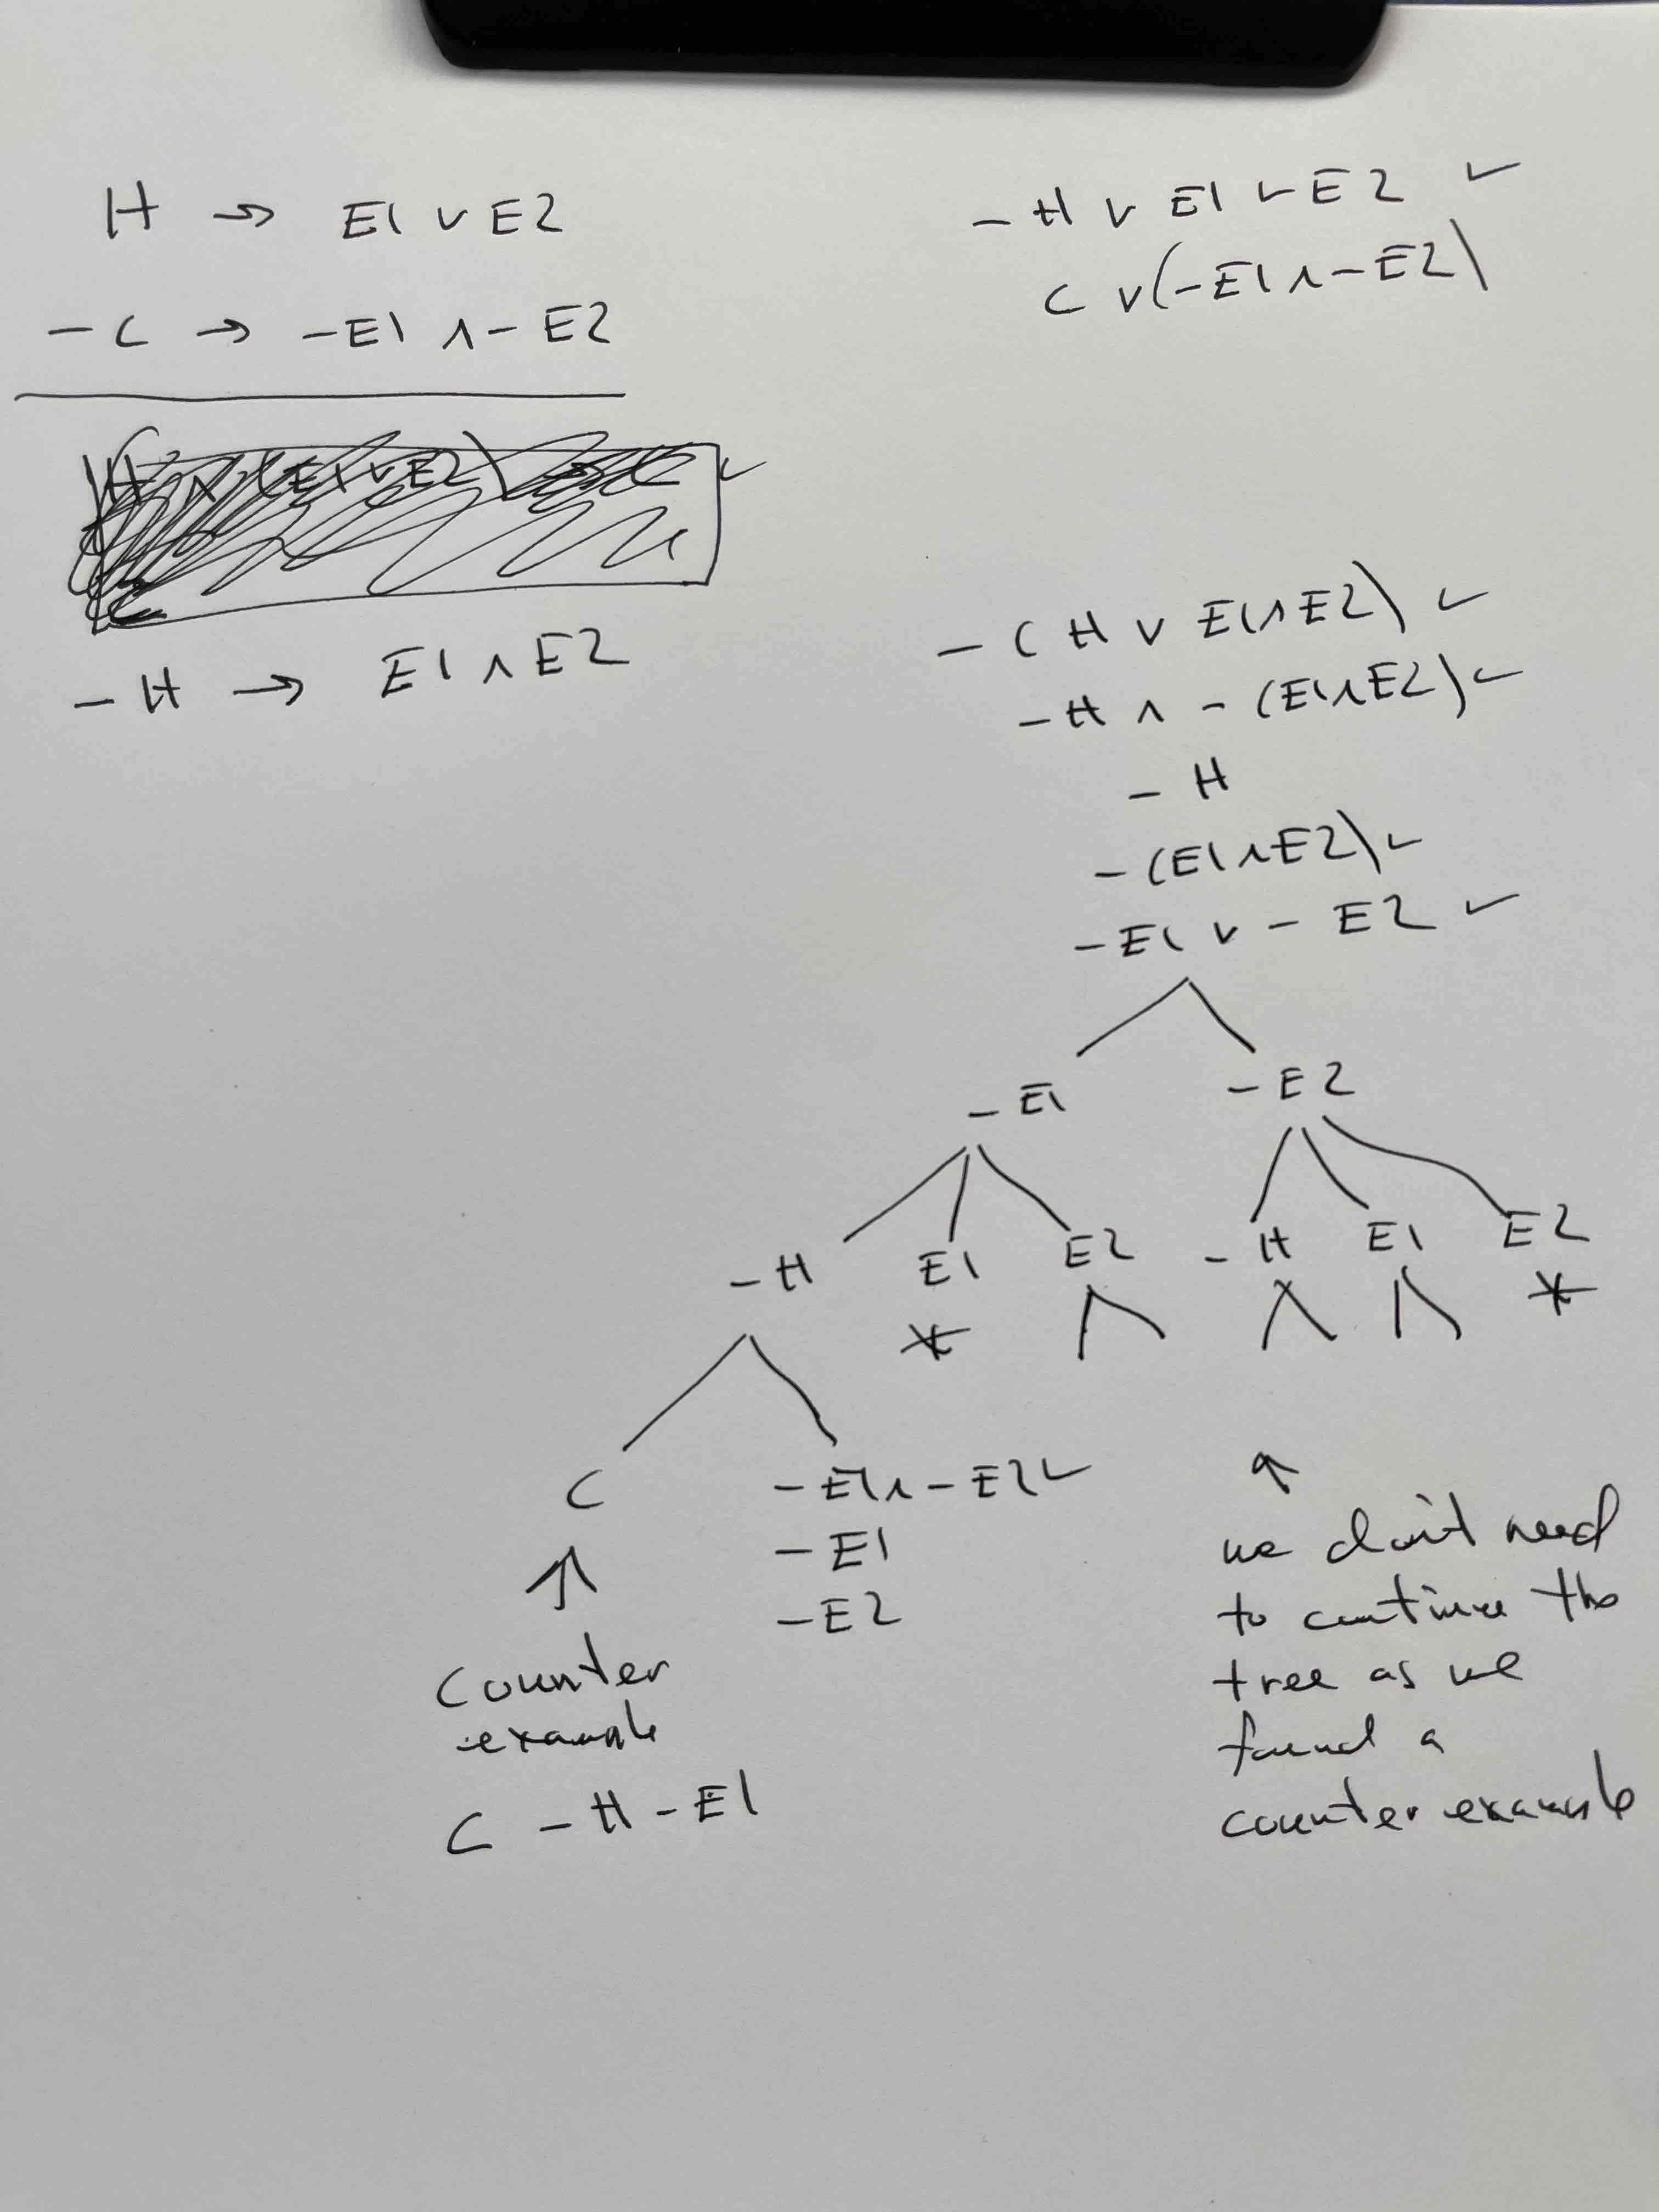 H → E1 ∨ E2
– C → –E1 ∧ – E2
– H → E1 ∧ E2
– H ∨ E1 ∨ E2 ✓
C ∨ (–E1 ∧ –E2)
– ( H ∨ E1 ∧ E2) ✓
– H ∧ – (E1 ∧ E2) ✓
– H
– (E1 ∧ E2) ✓
– E1 ∨ – E2 ✓
– E1 – E2
– H E1 E2 – H E1 E2
* *
C – E1 ∧ – E2 ✓
– E1
– E2
↑
Counter
example
C – H – E1
↑
we don't need
to continue the
tree as we
found a
counter example